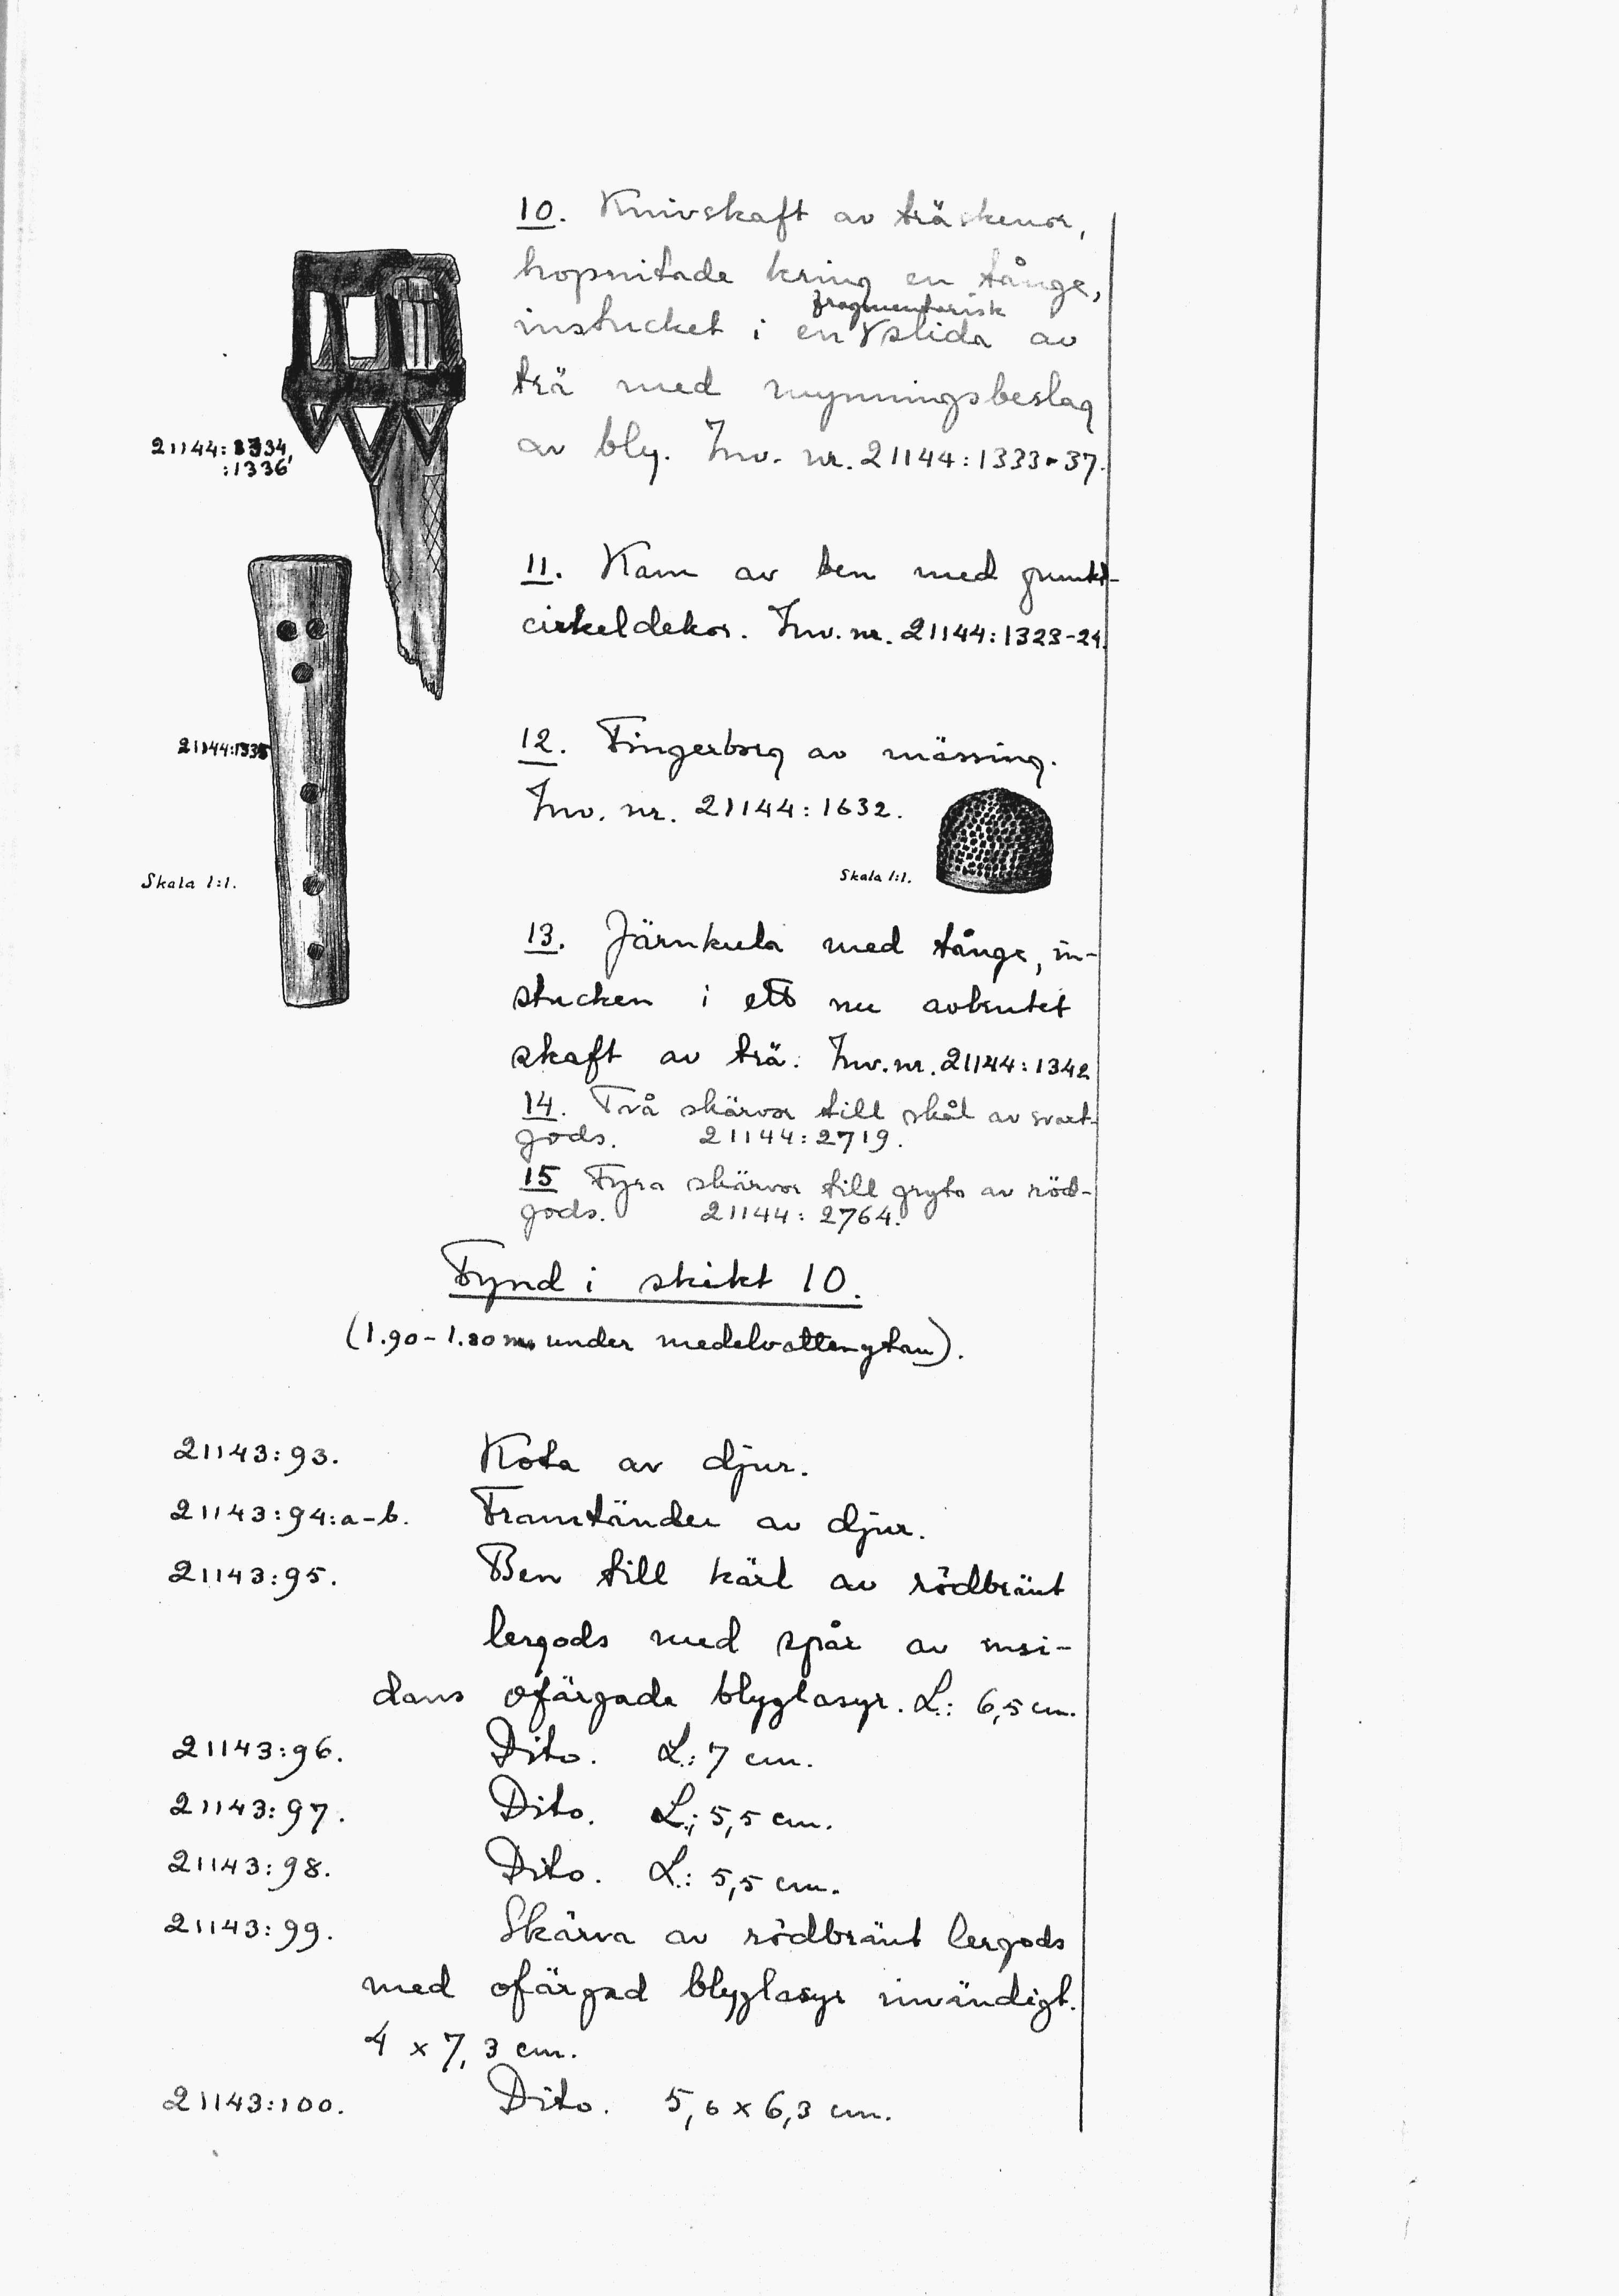 10. Knivskaft av träskenor,
hopnitade kring en tånge,
fragmentarisk
instucket i en V slida av
trä med mynningsbeslag
av bly. Inv. nr. 21144:1333-37.
21144:1334,
:1336
11. Kam av ben med punkt-
cirkeldekor. Inv. nr. 21144:1323-24.
21144:1335
12. Fingerborg av mässing.
Inv. nr. 21144:1632.
Skala 1:1.
Skala 1:1.
13. Järnkula med tånge, in-
stucken i ett nu avbrutet
skaft av trä. Inv. nr. 21144:1342
14. Två skärvor till skål av svart-
gods. 21144:2719.
15 Fyra skärvor till gryta av röd-
gods. 21144:2764.
Fynd i skikt 10.
(1.90-1.80 m. under medelvattenytan).
21143:93. Kota av djur.
21143:94:a-b. Framtänder av djur.
21143:95. Ben till kärl av rödbränt
lergods med spår av insi-
dans ofärgade blyglasyr. L.: 6,5 cm.
21143:96. Dito. L.: 7 cm.
21143:97. Dito. L.: 5,5 cm.
21143:98. Dito. L.: 5,5 cm.
21143:99. Skärva av rödbränt lergods
med ofärgad blyglasyr invändigt.
4 x 7,3 cm.
21143:100. Dito. 5,6 x 6,3 cm.